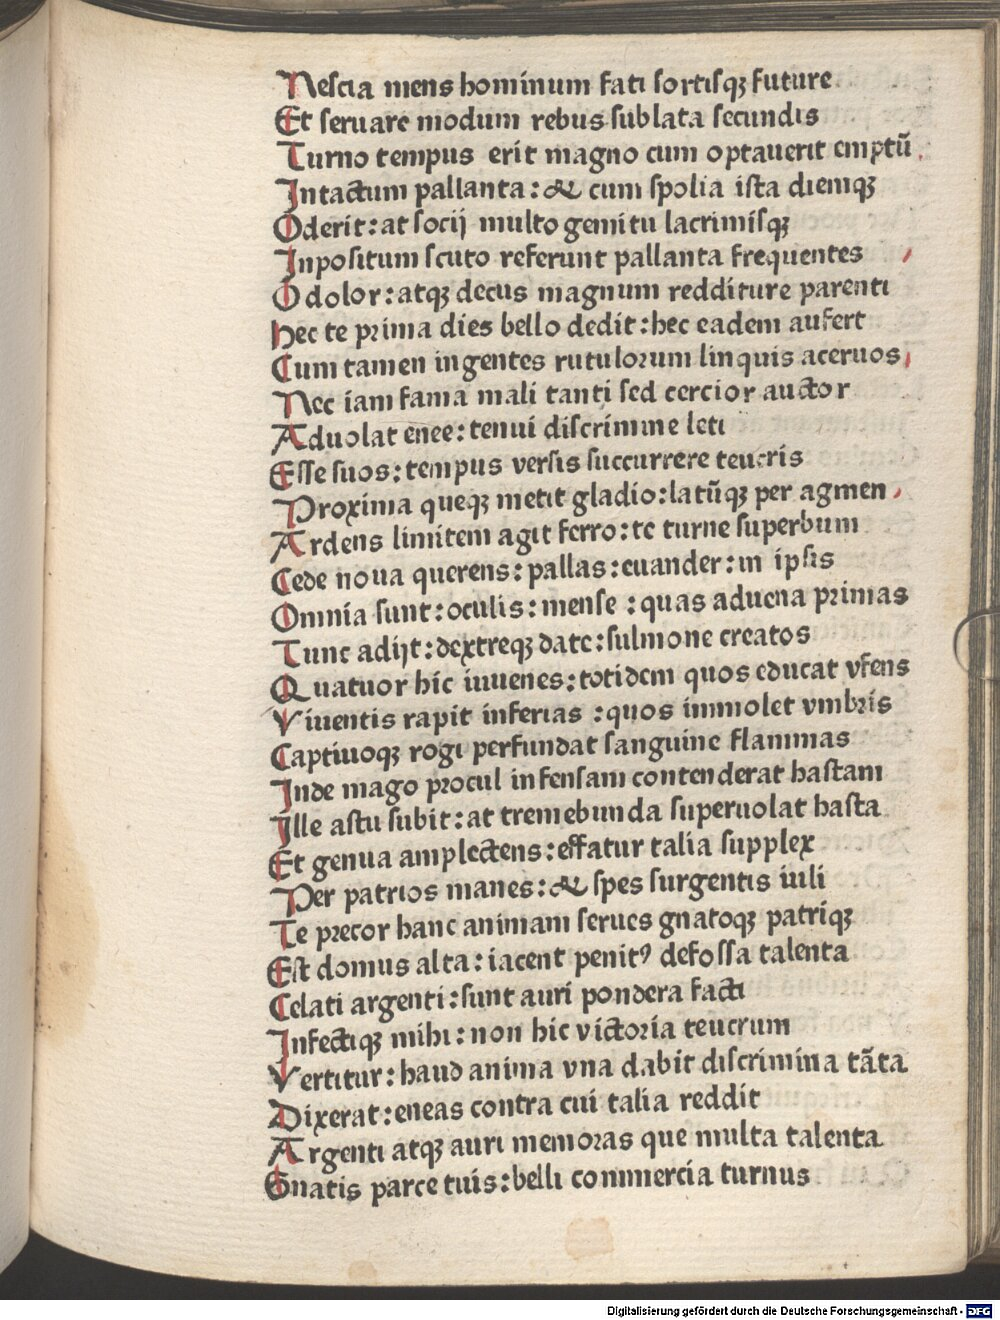 Nescia mens hominum fati sortisqꝫ future
Et seruare modum rebus sublata secundis
Turno tempus erit magno cum optauerit emptū
Intactum pallanta: & cum spolia ista diemqꝫ
Oderit: at socij multo gemitu lacrimisqꝫ
Inpositum scuto referunt pallanta frequentes
O dolor: atqꝫ decus magnum redditure parenti
hec te prima dies bello dedit: hec eadem aufert
Cum tamen ingentes rutulorum linquis aceruos
Nec iam fama mali tanti sed cercior auctor
Aduolat enee: tenui discrimine leti
Esse suos: tempus versis succurrere teucris
Proxima queqꝫ metit gladio: latūqꝫ per agmen
Ardens limitem agit ferro: te turne superbum
Cede noua querens: pallas: euander: in ipsis
Omnia sunt: oculis: mense : quas aduena primas
Tunc adijt: dextreqꝫ date: sulmone creatos
Quatuor hic iuuenes: totidem quos educat vfens
Viuentis rapit inferias : quos immolet vmbris
Captiuoqꝫ rogi perfundat sanguine flammas
Inde mago procul infensam contenderat hastam
Ille astu subit: at tremebunda superuolat hasta
Et genua amplectens: effatur talia supplex
Per patrios manes: & spes surgentis iuli
Te precor hanc animam serues gnatoqꝫ patriqꝫ
Est domus alta: iacent penitꝰ defossa talenta
Celati argenti: sunt auri pondera facti
Infectiqꝫ mihi: non hic victoria teucrum
Vertitur: haud anima vna dabit discrimina tāta
Dixerat: eneas contra cui talia reddit
Argenti atqꝫ auri memoras que multa talenta
Gnatis parce tuis: belli commercia turnus
Digitalisierung gefördert durch die Deutsche Forschungsgemeinschaft - DFG